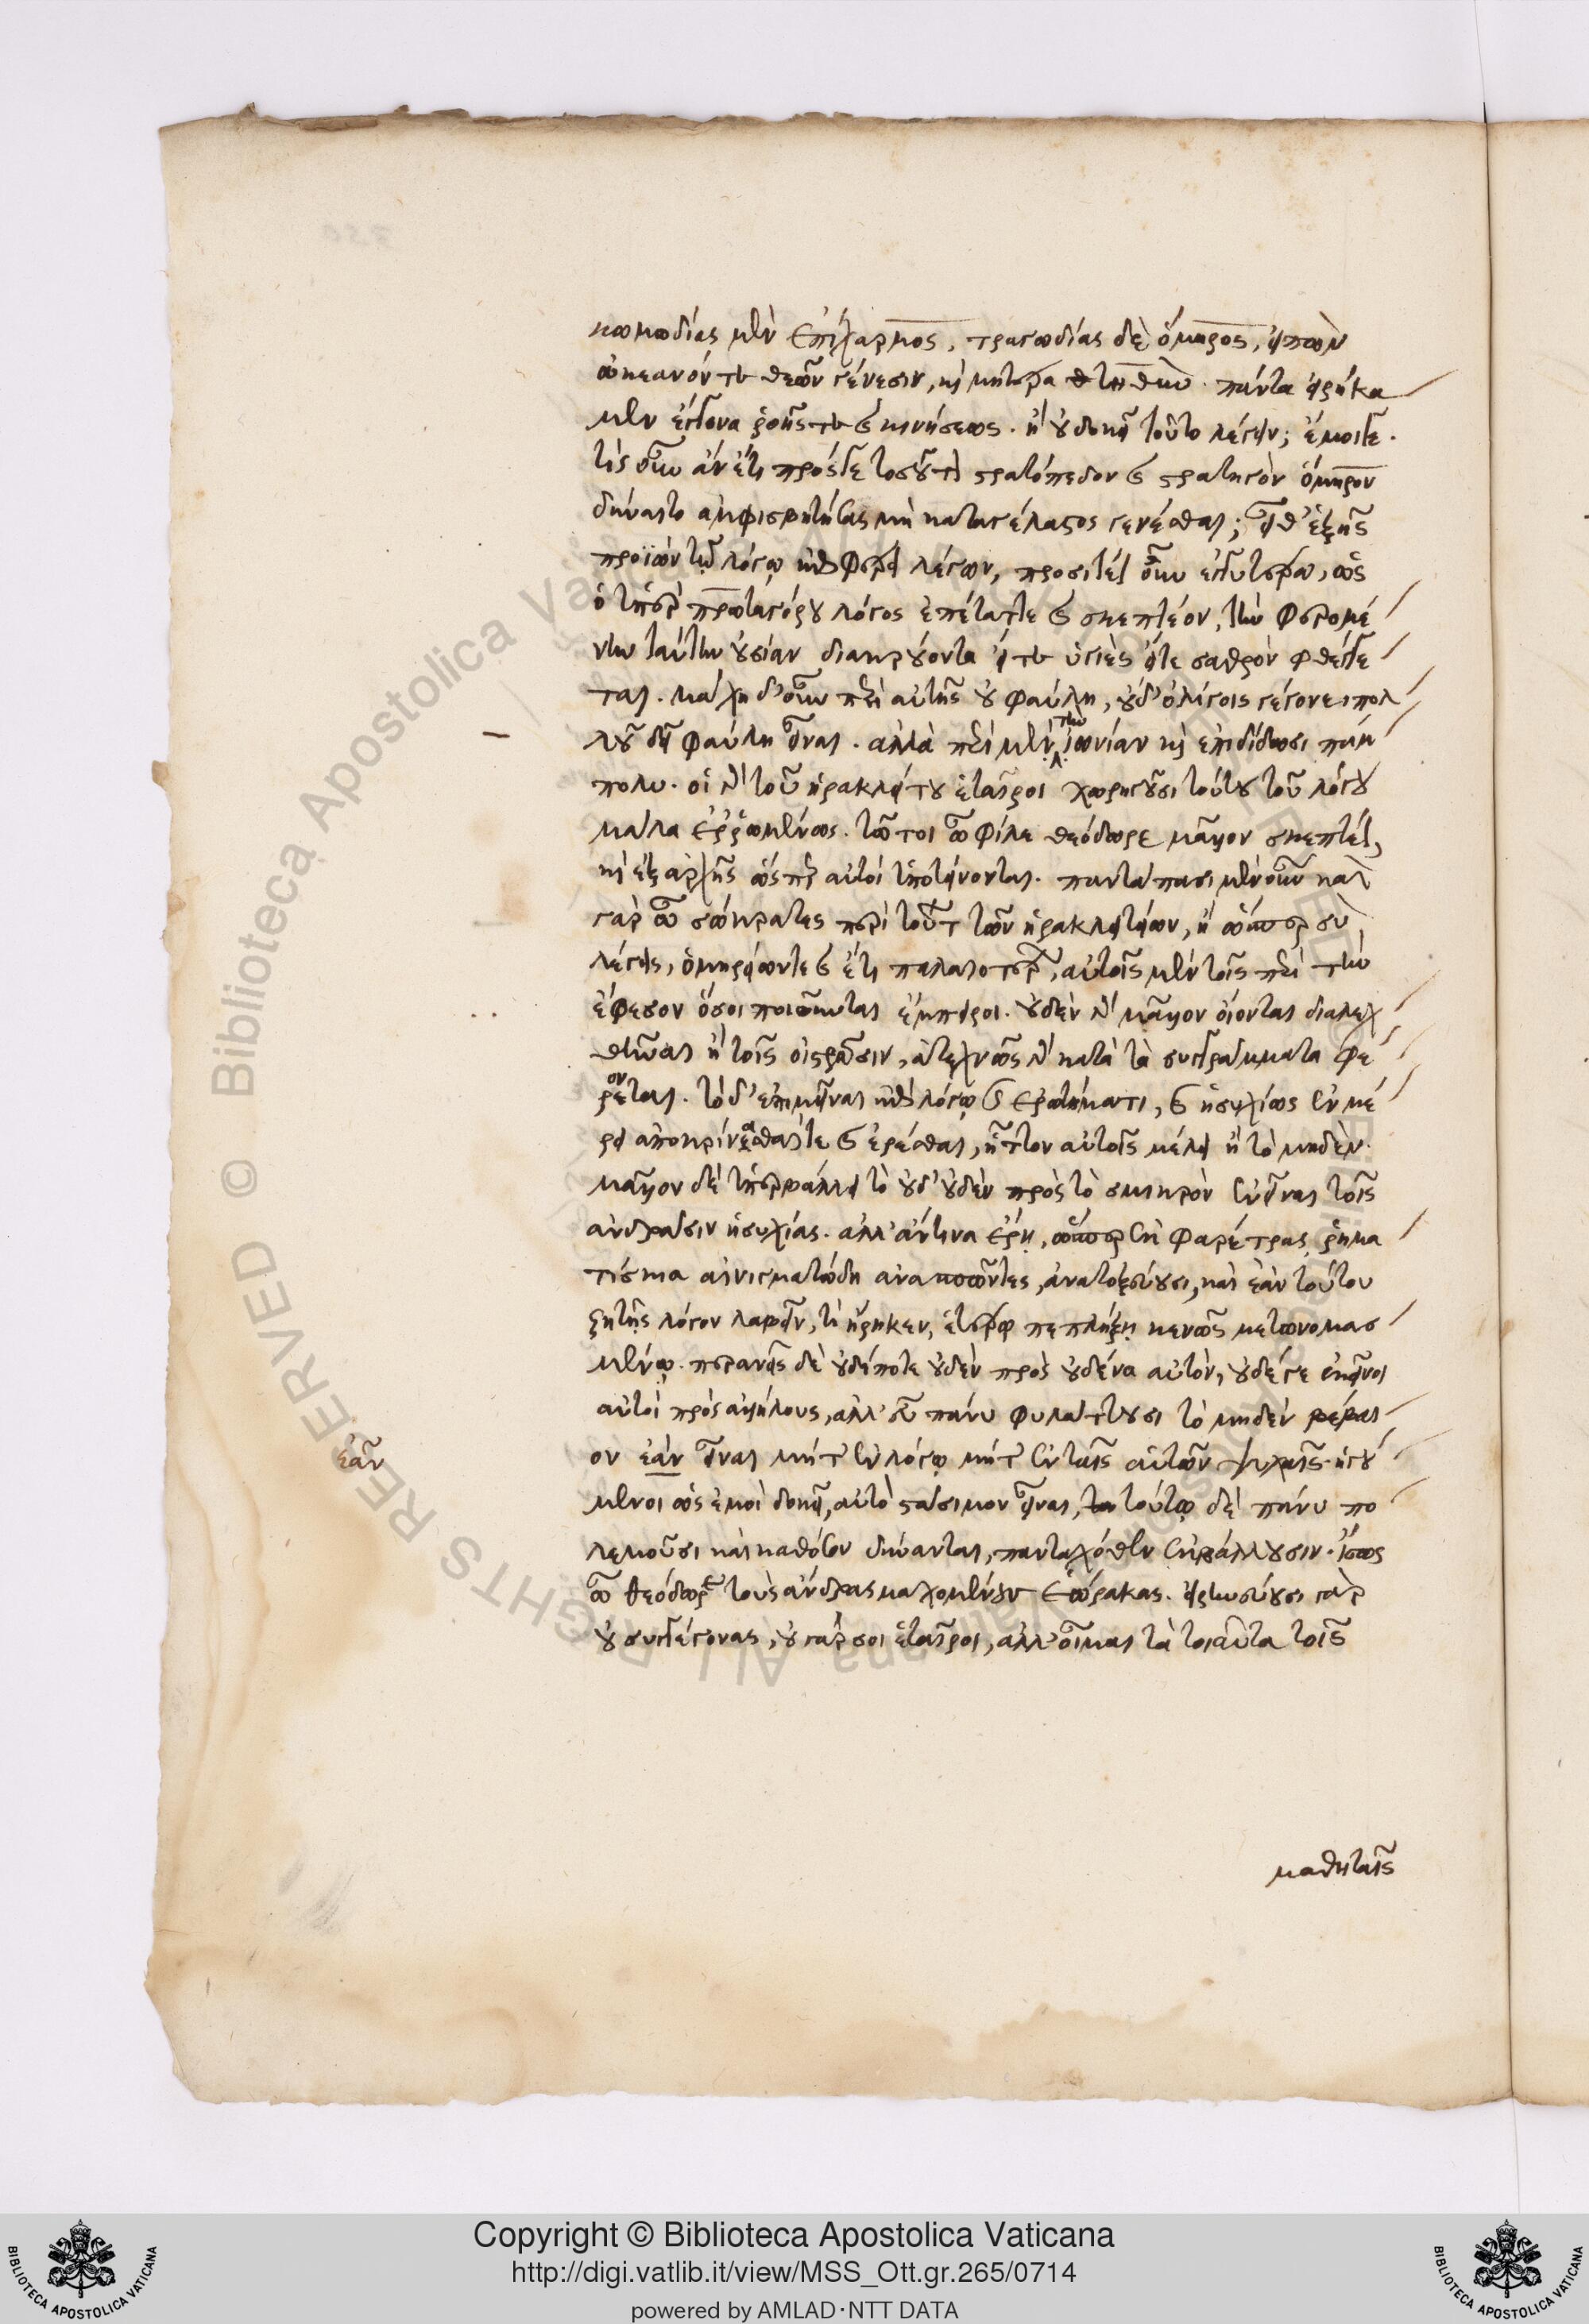 κωμωδίας μὲν ἐπίχαρμος, τραγωδίας δὲ ὅμηρος, εἰπὼν
ὠκεανόν τε θεῶν γένεσιν, καὶ μητέρα τηθύν. πάντα εἴρηκε
μὲν ἔκγονα ῥοῆς τε καὶ κινήσεως. ἢ οὐ δοκεῖ τοῦτο λέγειν; ἔμοιγε.
τίς οὖν ἂν ἔτι πρός γε τοσοῦτον στρατόπεδον καὶ στρατηγὸν ὅμηρον
δύναιτο ἀμφισβητήσας μὴ καταγέλαστος γενέσθαι; εἶθ' ἑξῆς
προϊὼν τῶ λόγω καὶ λέγων, προσιτέον οὖν ἐγγυτέρω, ὡς
ὁ ὑπὲρ πρωταγόρου λόγος ἐπέταττε καὶ σκεπτέον, τὴν φερομέ
νην ταύτην οὐσίαν διακρούοντα εἴτε ὑγιὲς εἴτε σαθρὸν φθέγγε
ται. μάχη δ' οὖν περὶ αὐτῆς οὐ φαύλη, οὐδ' ὀλίγοις γέγονε· πολ
λοῦ δεῖ φαύλη εἶναι. ἀλλὰ περὶ μὲν τὴν ἰωνίαν καὶ ἐπιδίδωσι πάμ
πολυ. οἱ γὰρ τοῦ ἡρακλείτου ἑταῖροι χορηγοῦσι τούτου τοῦ λόγου
μάλα ἐρρωμένως. τῶ τοι ὦ φίλε θεόδωρε μᾶλλον σκεπτέον,
καὶ ἐξ ἀρχῆς ὥσπερ αὐτοὶ ὑποτείνονται. παντάπασι μὲν οὖν καὶ
γὰρ ὦ σώκρατες περὶ τούτων τῶν ἡρακλειτείων, ἢ ὥσπερ σὺ
λέγεις, ὁμηρείων τε καὶ ἔτι παλαιοτέρων, αὐτοῖς μὲν τοῖς περὶ τὴν
ἔφεσον ὅσοι ποιοῦνται ἔμπειροι. οὐδὲν μᾶλλον οἴονται διαλεχ
θῆναι ἢ τοῖς οἰστρῶσιν, ἀτεχνῶς γὰρ κατὰ τὰ συγγράμματα φέ
ρονται. τὸ δ' ἐπιμεῖναι ἐπὶ λόγω καὶ ἐρωτήματι, καὶ ἡσυχίως ἐν μέ
ρει ἀποκρίνασθαί τε καὶ ἐρέσθαι, ἧττον αὐτοῖς μέλει ἢ τὸ μηδὲν.
μᾶλλον δὲ ὑπερβάλλει τὸ οὐδ' οὐδὲν πρὸς τὸ σμικρὸν ἐνεῖναι τοῖς
ἀνδράσιν ἡσυχίας. ἀλλ' ἄν τινα ἔρη, ὥσπερ ἐκ φαρέτρας ῥημα
τίσκια αἰνιγματώδη ἀνασπῶντες, ἀνατοξεύουσι, καὶ ἐὰν τούτου
ζητῆς λόγον λαβεῖν, τί εἴρηκεν, ἑτέρω πεπλήξη κενῶς μετωνομασ
μένω. περανεῖς δὲ οὐδέποτε οὐδὲν πρὸς οὐδένα αὐτῶν, οὐδέ γε ἐκεῖνοι
αὐτοὶ πρὸς ἀλλήλους, ἀλλ' εὖ πάνυ φυλάττουσι τὸ μηδὲν βέβαι
ον ἐὰν εἶναι μήτ' ἐν λόγω μήτ' ἐν ταῖς αὑτῶν ψυχαῖς· ἡγού
μενοι ὡς ἐμοὶ δοκεῖ, αὐτὸ στάσιμον εἶναι, τούτω δὲ πάνυ πο
λεμοῦσι καὶ καθόσον δύνανται, πανταχόθεν ἐκβάλλουσιν. ἴσως
ὦ θεόδωρε τοὺς ἄνδρας μαχομένους ἑώρακας. εἰρηνεύουσι γὰρ
οὐ συγγέγονας, οὐ γὰρ σοι ἑταῖροι, ἀλλ' οἶμαι τὰ τοιαῦτα τοῖς
μαθηταῖς
ἐᾶν
Copyright © Biblioteca Apostolica Vaticana
http://digi.vatlib.it/view/MSS_Ott.gr.265/0714
powered by AMLAD·NTT DATA
BIBLIOTECA APOSTOLICA VATICANA
BIBLIOTECA APOSTOLICA VATICANA